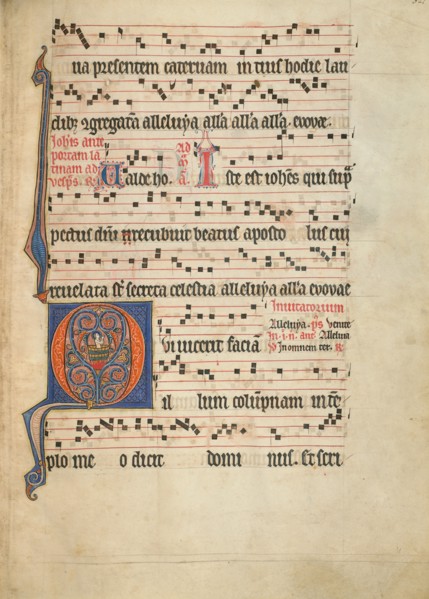 ua presentem cateruam in tuis hodie lau
dibꝫ ꝯgregata alleluya alla alla alla. evovae.
Ioħis ante
portam la
tinam ad
vesꝑs. R.
Valde ho.
Ad
a.
Iste est ioħes qui sup̄
pectus dn̄i recubuit beatus aposto lus cui
reuelata st̄ secreta celestia alleluya alla evovae
Inuitatorium
Alleluya. ps venite
In .i. n. ant Alleluia
Qui uicerit faciā
il lum colūpnam in tē
plo me o dicit domi nus. Et scri